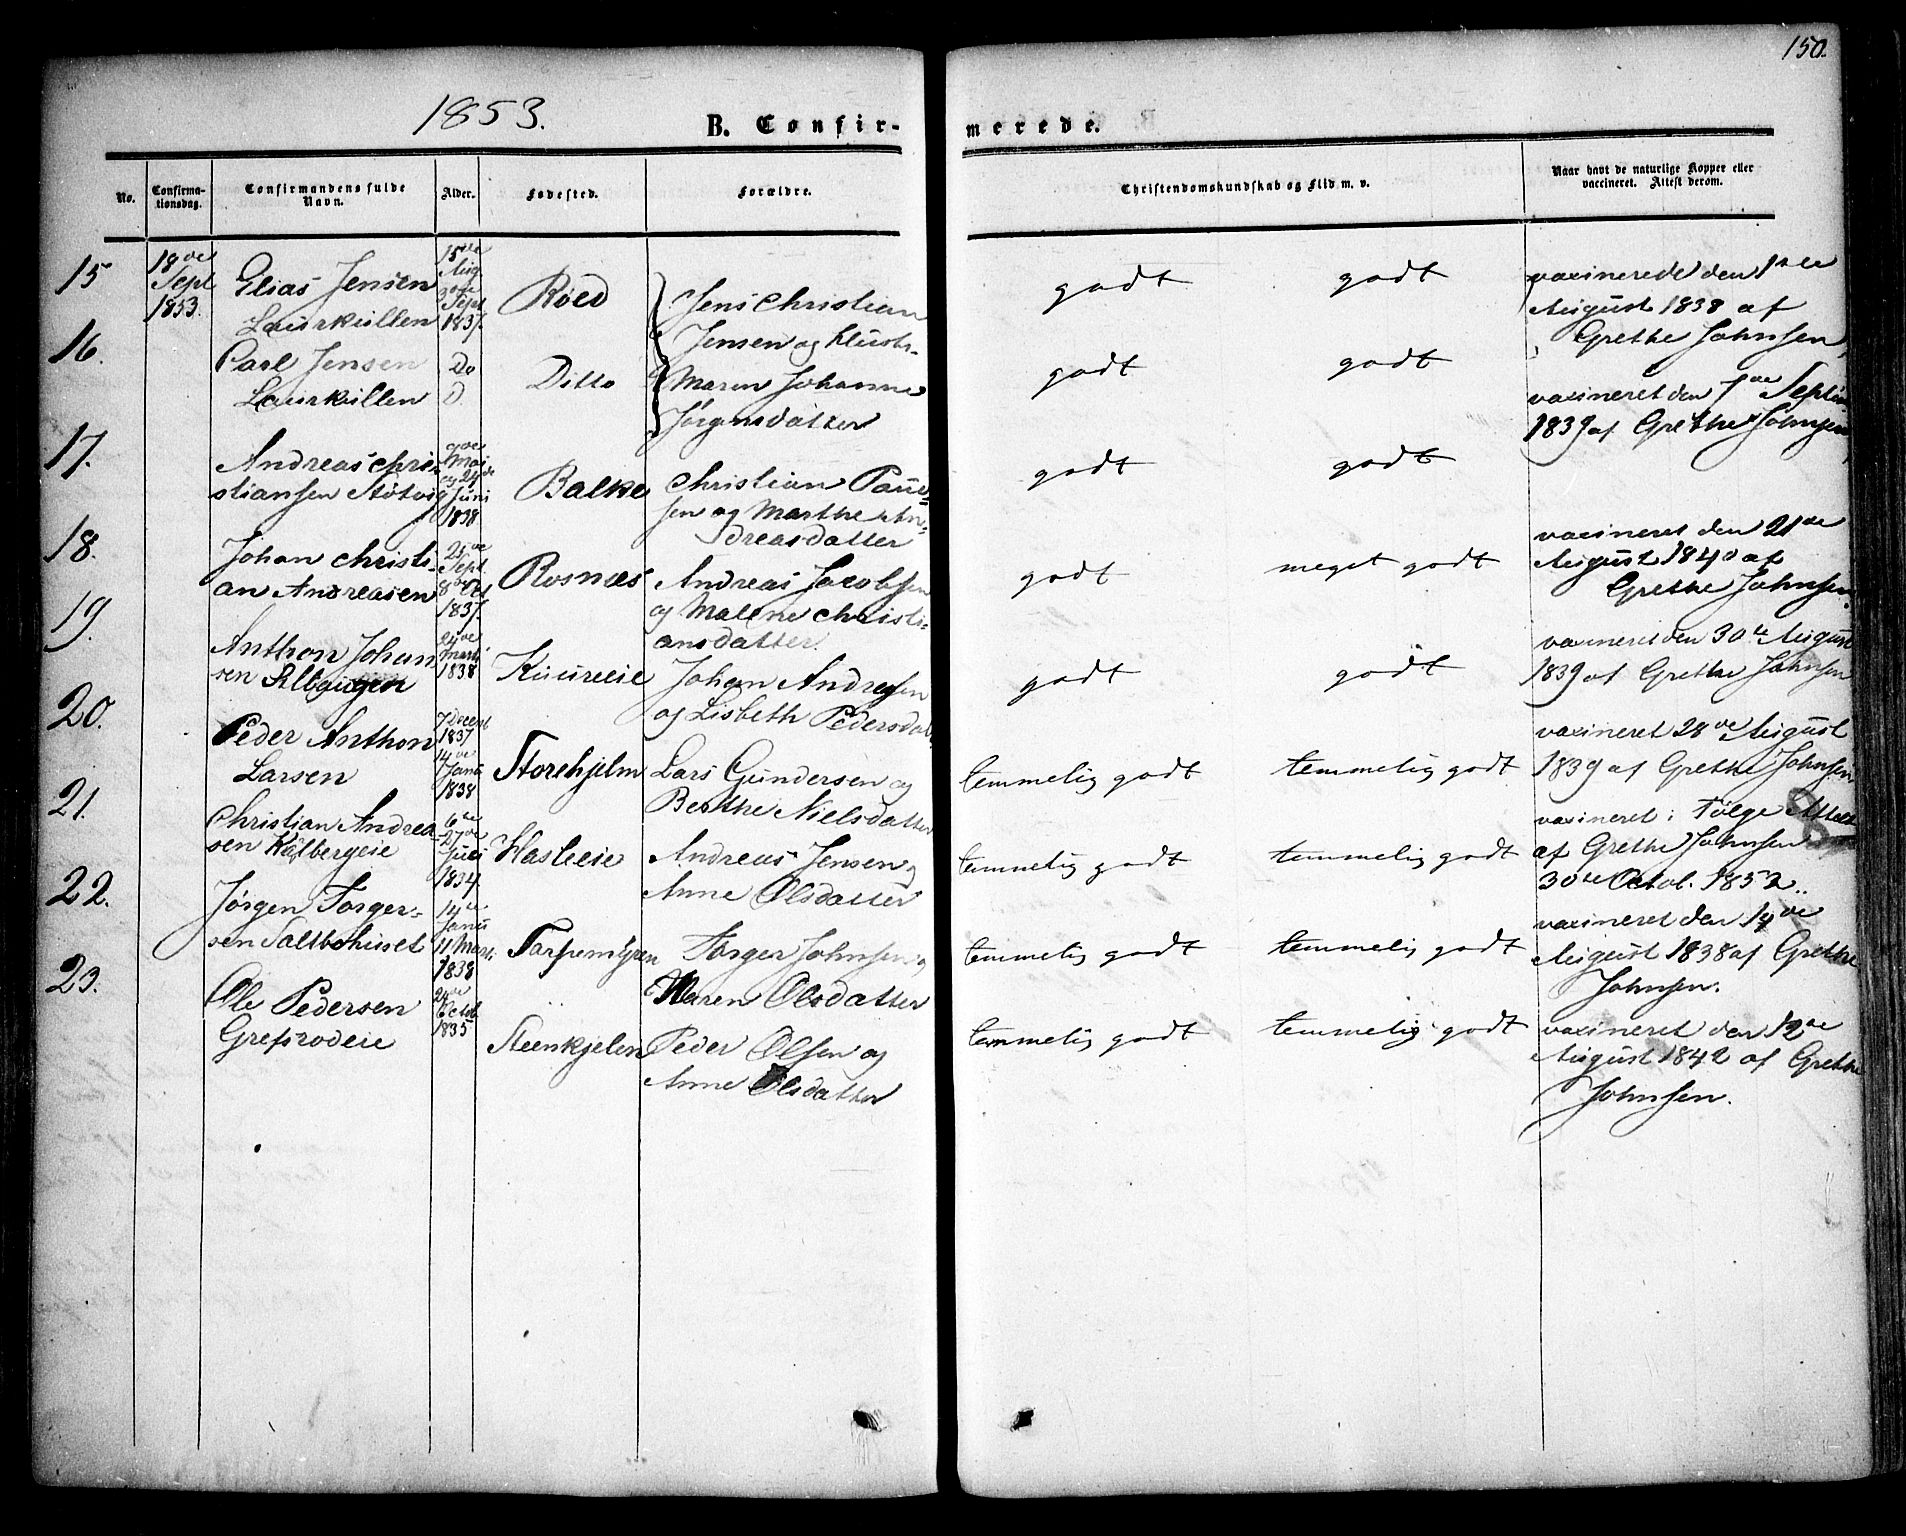 150.
1853.
B. Confir-
merede.
No.
Confirma-
tionsdag.
Confirmandens fulde
Navn.
Alder.
Fødested.
Forældre.
Christendomskundskab og Flid m. v.
Naar havt de naturlige Kopper eller
vaccineret. Attest derom.
15
18de
Sept
1853.
Elias Jensen
Laurkullen
15de
Aug
Sept
1837.
Röed
Jens Christian
Jensen og Hustr.
godt
godt
vaxinerede den 1ste
August 1838 af
Grethe Johnsen
16.
Carl Jensen
Laurkullen
Do
D.
Ditto
Maren Johanne
Jørgensdatter
godt
godt
vaxineret den 7de Septbr
1839 af Grethe Johnsen
17.
Andreas Chri-
stiansen Støtvig
Mai
og 24de
Juni
1838
Balke
Christian Paul-
sen og Marthe An-
dreasdatter
godt
godt
18.
Johan Christi-
an Andreasen
25de
Sept.
8de Oct
1837.
Rosnæs
Andreas Jacobsen
og Malene Christi-
ansdatter.
godt
meget godt
vaxineret den 21de
August 1840 af
Grethe Johnsen.
19.
Anthon Johan
sen
24de
Marts
1838
Kuureeie
Johan Andresen
og Lisbeth Pedersdat.
godt
godt
vaxineret den 30te August
1839 af Grethe Johnsen
20.
Peder Anthon
Larsen
7 Decemb
1837
14de
Janu
1838
Storehjelm
Lars Gundersen og
Berthe Nielsdatter
temmelig godt
temmelig godt
vaxineret 28de August
1839 af Grethe Johnsen
21.
Christian Andrea
sen Kålbergeie
6te
27de
Juli
1834.
Hasleeie
Andreas Jensen og
Anne Olsdatter
temmelig godt
temmelig godt
vaxineret i Følge Attest
af Grethe Johnsen
30te Octob. 1852.
22.
Jørgen Torger-
sen Saltbohuset
14de
Janu
11 Marts
1838
Torger Johnsen og
Maren Olsdatter
temmelig godt
temmelig godt
vaxineret den 14de
August 1838 af Grethe
Johnsen.
23.
Ole Pedersen
Grefsrodeie
24de
Octob
1835
Steenkjelen
Peder Olsen og
Anne Olsdatter
temmelig godt
temmelig godt
vaxineret den 12te
August 1842 af Grethe
Johnsen.